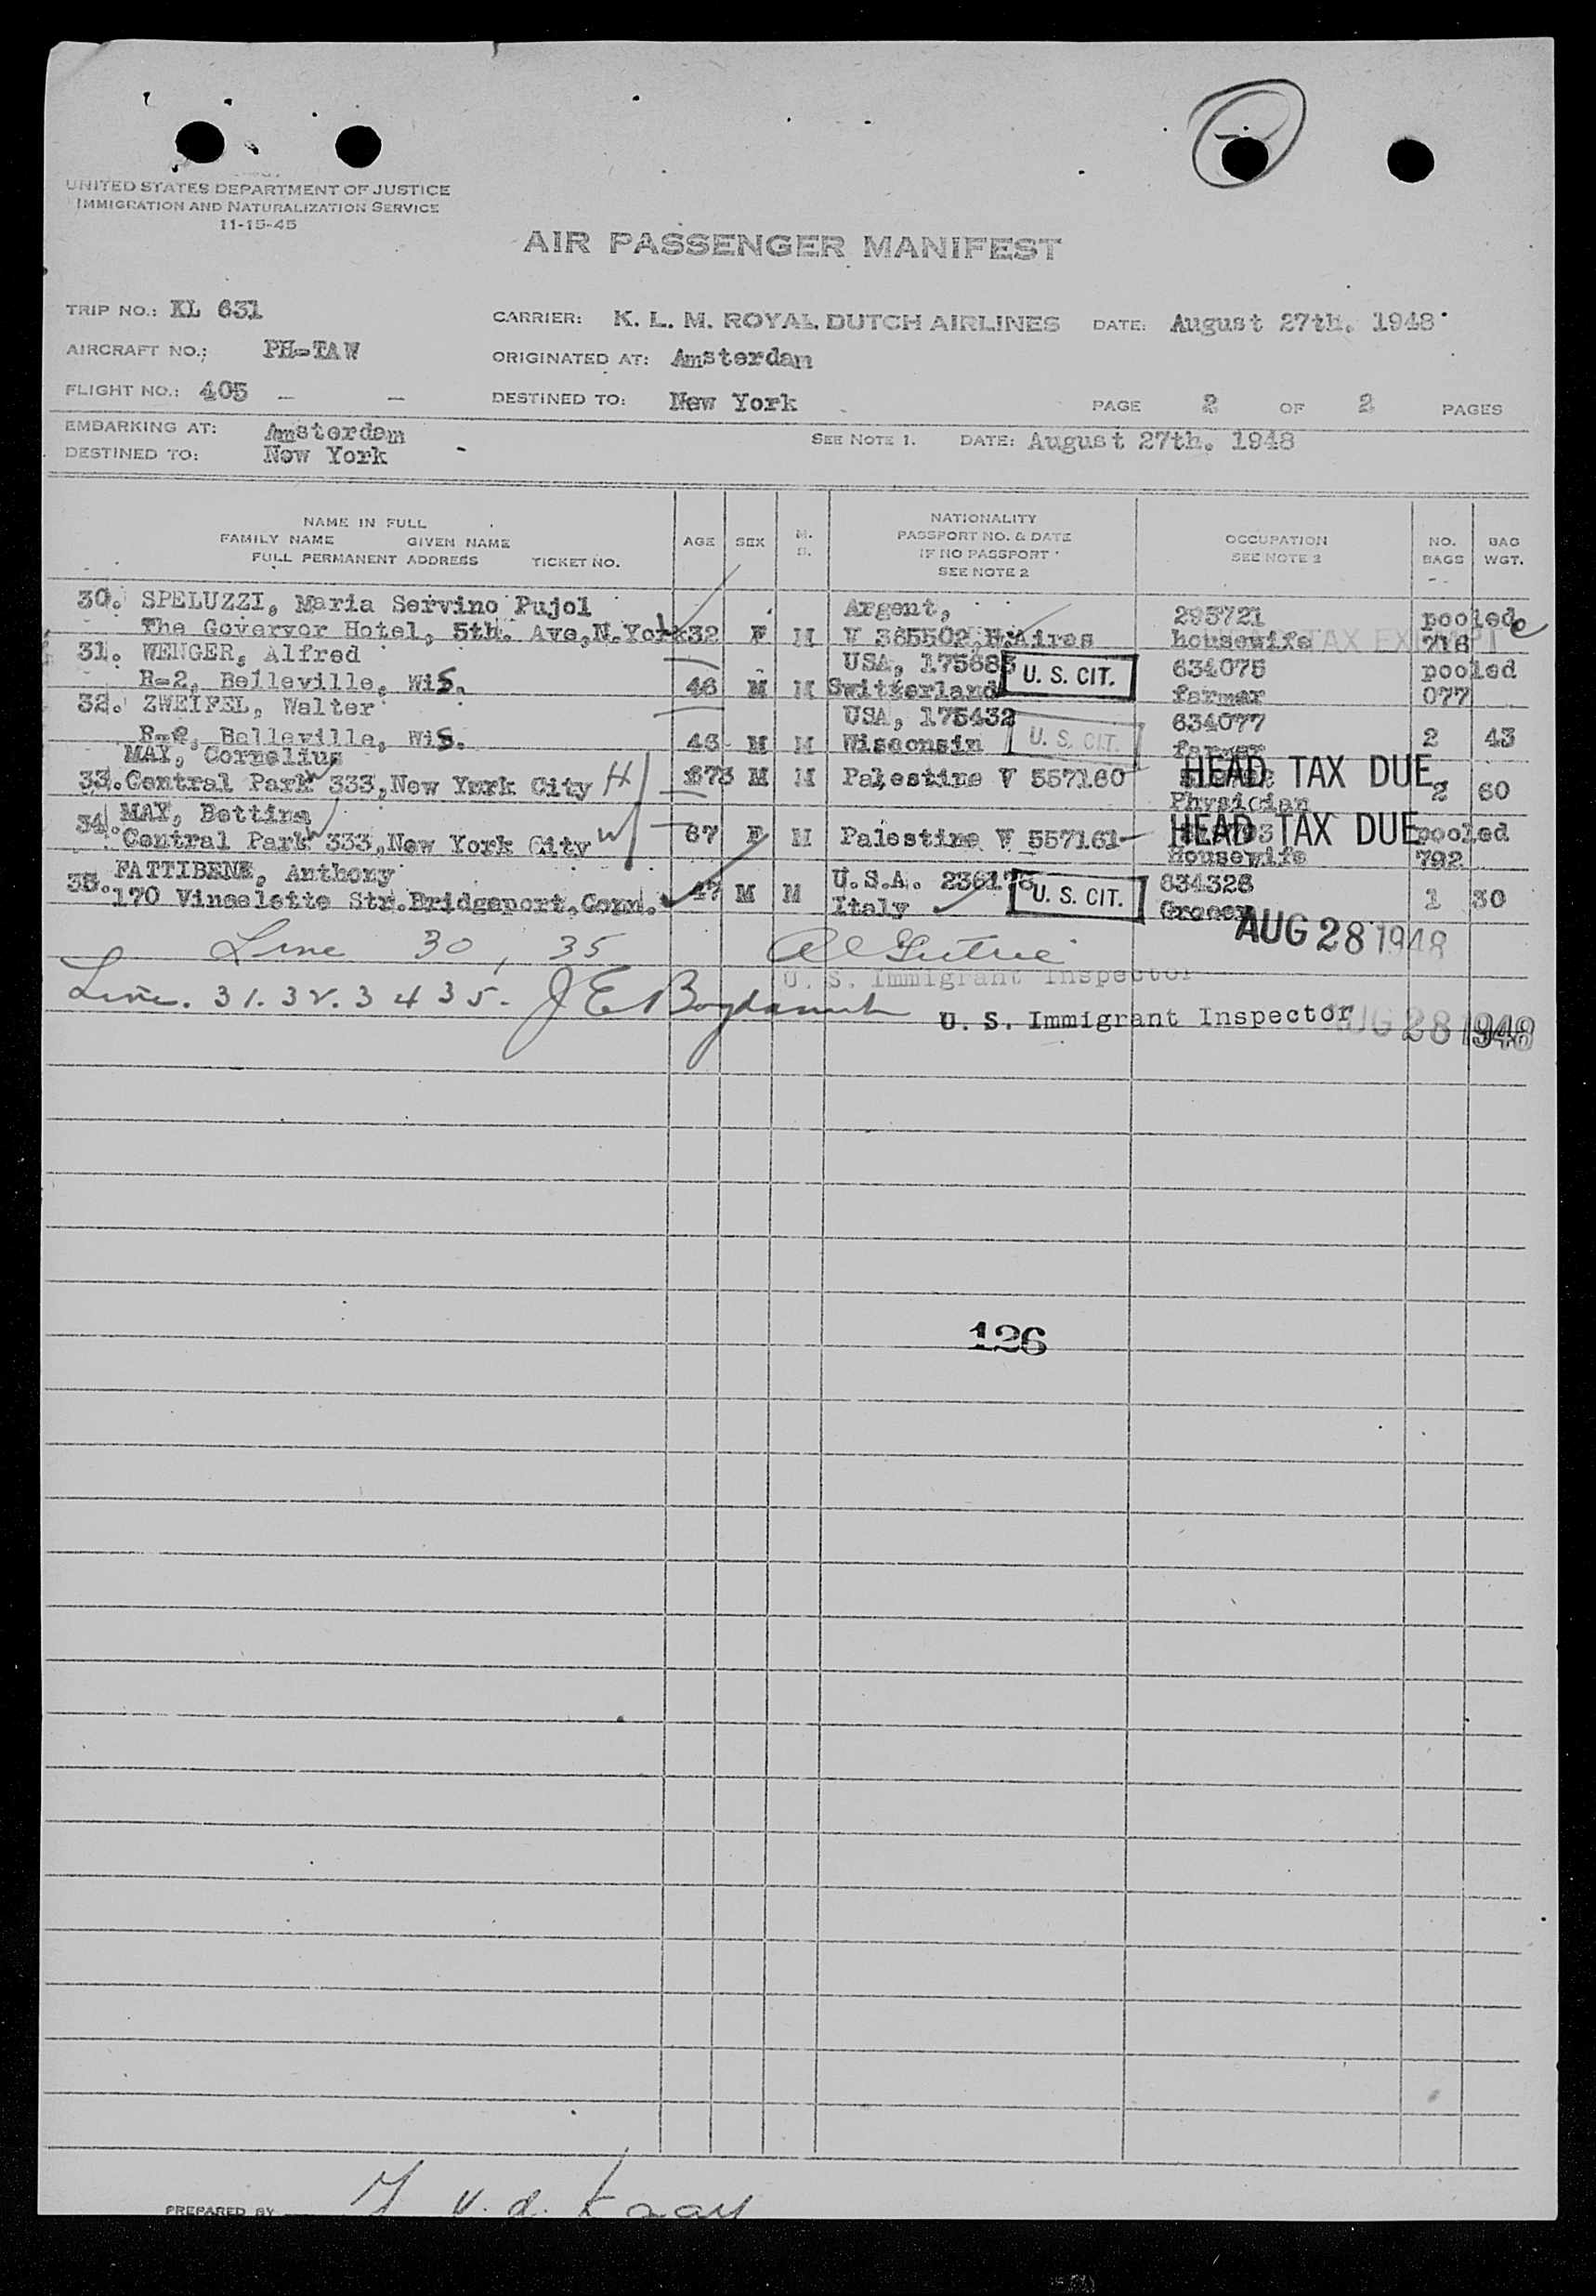 UNITED STATES DEPARTMENT OF JUSTICE
IMMIGRATION AND NATURALIZATION SERVICE
11-15-45
AIR PASSENGER MANIFEST
TRIP NO.: KL 631 CARRIER: K. L. M. ROYAL DUTCH AIRLINES DATE: August 27th. 1948
AIRCRAFT NO.: PH-TAW ORIGINATED AT: Amsterdam
FLIGHT NO.: 405 - - DESTINED TO: New York PAGE 2 OF 2 PAGES
EMBARKING AT: Amsterdam SEE NOTE 1. DATE: August 27th. 1948
DESTINED TO: New York -
NAME IN FULL
FAMILY NAME GIVEN NAME
FULL PERMANENT ADDRESS TICKET NO.
AGE SEX M. S.
NATIONALITY
PASSPORT NO. & DATE
IF NO PASSPORT
SEE NOTE 2
OCCUPATION
SEE NOTE 3
NO. BAGS
BAG WGT.
30. SPELUZZI, Maria Servino Pujol Argent, 295721 pooled
The Govervor Hotel, 5th. Ave, N.York 32 F M V 365502 B.Aires housewife TAX EXEMPT 716
31. WENGER, Alfred USA, 175685 U. S. CIT. 634075 pooled
R-2, Belleville, Wis. 46 M M Switterland farmer 077
32. ZWEIFEL, Walter USA, 175432 U. S. CIT. 634077
R-2, Belleville, Wis. 43 M M Wisconsin farmer 2 43
MAY, Cornelius
33. Central Park W 333, New York City H 73 M M Palestine V 557160 HEAD TAX DUE 2 60
Physician
34. MAY, Bettina
Central Park W 333, New York City W 67 F M Palestine V 557161 HEAD TAX DUE pooled
Housewife 792
FATTIBENE, Anthony U.S.A. 236175 U. S. CIT. 634326
35. 170 Vinselette Str. Bridgeport, Conn. 47 M M Italy Grocer 1 30
AUG 28 1948
Line 30, 35
U. S. Immigrant Inspector
Line. 31. 32. 3 4 35. J E
U. S. Immigrant Inspector AUG 28 1948
126
PREPARED BY